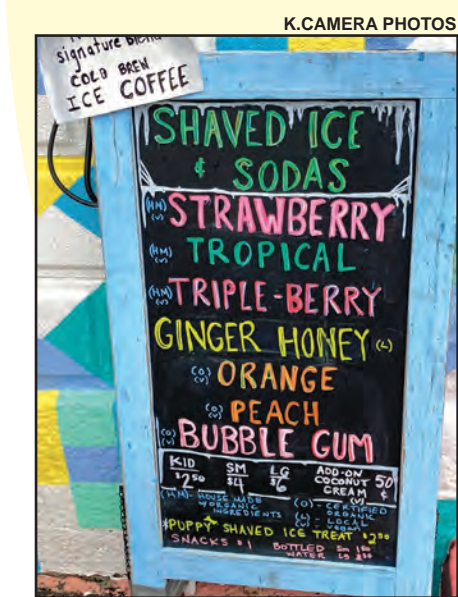 K.CAMERA PHOTOS
signature blend
COLD BREW
ICE COFFEE
SHAVED ICE
& SODAS
(HM) (V) STRAWBERRY
(HM) (V) TROPICAL
(HM) (V) TRIPLE-BERRY
GINGER HONEY (L)
(O) (V) ORANGE
(O) (V) PEACH
(O) (V) BUBBLE GUM
KID SM LG ADD-ON
$2.50 $4 $6 COCONUT CREAM (V) 50¢
(HM) - HOUSE MADE W/ORGANIC INGREDIENTS
(O) - CERTIFIED ORGANIC
(L) - LOCAL
(V) - vegan
*PUPPY SHAVED ICE TREAT $2.50
SNACKS $1 BOTTLED WATER Sm
LG